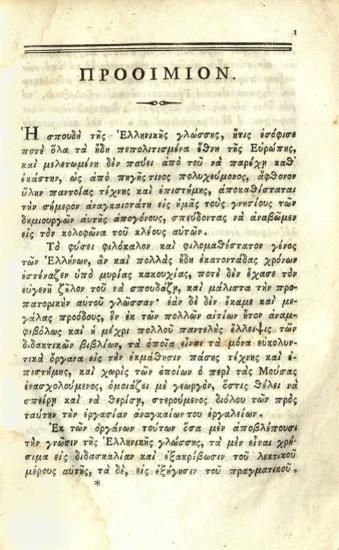 1
ΠΡΟΟΙΜΙΟΝ.
Ἡ σπουδὴ τῆς Ἑλληνικῆς γλώσσης, ἥτις ἐσόφισε
ποτὲ ὅλα τὰ ἤδη πεπολιτισμένα ἔθνη τῆς Εὐρώπης,
καὶ μελετωμένη δὲν παύει ἀπὸ τοῦ νὰ παρέχῃ καθ'
ἑκάστην, ὡς ἀπό πηγῆς τινος πολυχεύμονος, ἄφθονον
ὕλην παντοίας τέχνης καὶ ἐπιστήμης, ἀποκαθίσταται
τὴν σήμερον ἀναγκαιοτάτη εἰς ἡμᾶς τοὺς γνησίους τῶν
δημιουργῶν αὐτῆς ἀπογόνους, σπεύδοντας νὰ ἀναβῶμεν
εἰς τὸν κολοφῶνα τοῦ κλέους αὐτῶν.
Τὸ φύσει φιλόκαλον καὶ φιλομαθέστατον γένος
τῶν Ἑλλήνων, ἂν καὶ πολλὰς ἤδη ἑκατοντάδας χρόνων
ἐστέναζεν ὑπὸ μυρίας κακουχίας, ποτὲ δὲν ἔχασε τὸν
εὐγενῆ ζῆλον τοῦ νὰ σπουδάζῃ, καὶ μάλιστα τὴν προ-
πατορικὴν αὑτοῦ γλῶσσαν· ἐὰν δὲ δὲν ἔκαμε καὶ με-
γάλας προόδους, ἓν ἐκ τῶν πολλῶν αἰτίων ἦτον ἀναμ-
φιβόλως καὶ ἡ μέχρι πολλοῦ παντελὴς ἔλλειψις τῶν
διδακτικῶν βιβλίων, τὰ ὁποῖα εἶναι τὰ μόνα εὐκολυν-
τικὰ ὄργανα εἰς τὴν ἐκμάθησιν πάσης τέχνης καὶ ἐ-
πιστήμης, καὶ χωρὶς τῶν ὁποίων ὁ περὶ τὰς Μούσας
ἐνασχολούμενος, ὁμοιάζει μὲ γεωργὸν, ὅστις θέλει νὰ
σπείρῃ καὶ νὰ θερίσῃ, στερούμενος διόλου τῶν πρὸς
ταύτην τὴν ἐργασίαν ἀναγκαίων τοῦ ἐργαλείων.
Ἐκ τῶν ὀργάνων τούτων ὅσα μὲν ἀποβλέπουσι
τὴν γνῶσιν τῆς Ἑλληνικῆς γλώσσης, τὰ μὲν εἶναι χρή-
σιμα εἰς διδασκαλίαν καὶ ἐξακρίβωσιν τοῦ λεκτικοῦ
μέρους αὐτῆς, τὰ δὲ, εἰς ἐξήγησιν τοῦ πραγματικοῦ.
*